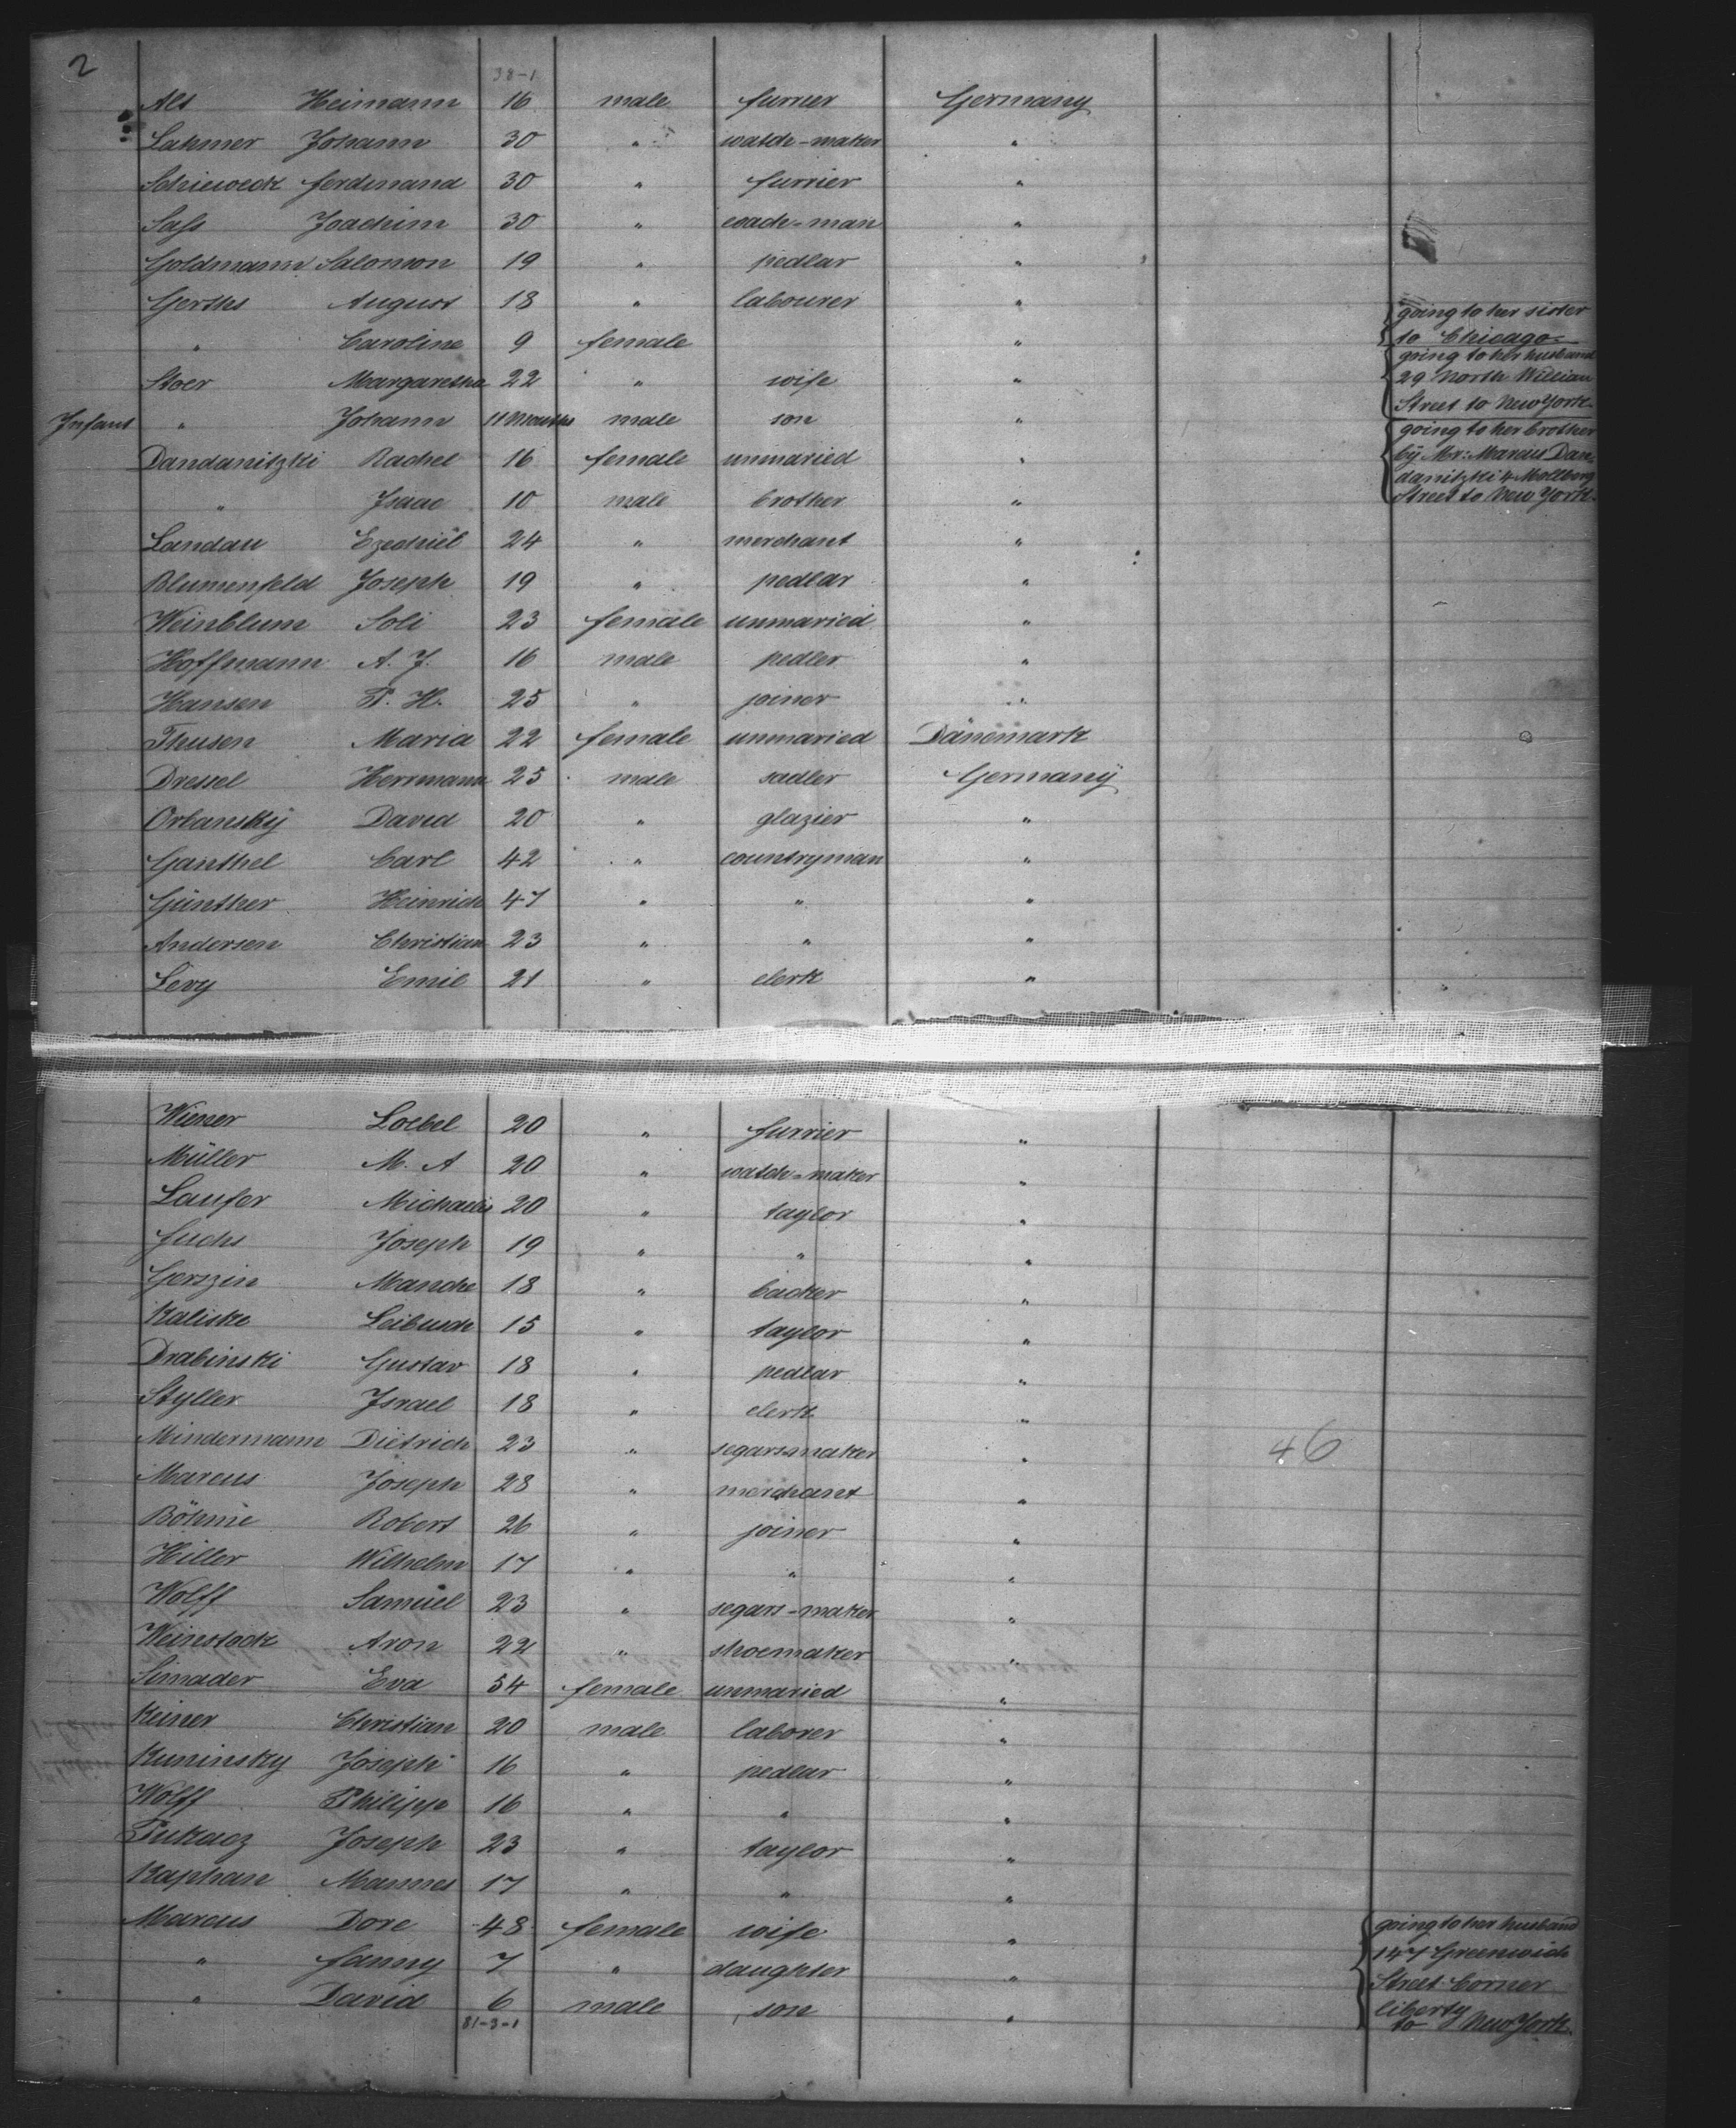 2
38-1
Als Heimann 16 male furrier Germany
Lahmer Johann 30 " watch-maker "
Schieweck Ferdinand 30 " furrier "
Sass Joachim 30 " coach-man "
Goldmann Salomon 19 " pedlar "
Gerths August 18 " labourer "
" Caroline 9 female " going to her sister
to Chicago
Stoer Margaretha 22 " wife " going to her husband
29 North William
Street to New York
Infant " Johann 11 Months male son "
Dandanitzki Rachel 16 female unmaried " going to her brother
by Mr: Marcus Dan-
danitzki 4
Street to New York
" Isaac 10 male brother "
Landau Ezechiel 24 " merchant "
Blumenfeld Joseph 19 " pedlar "
Weinblum Soli 23 female unmaried "
Hoffmann A. J. 16 male pedler "
Hansen P. H. 25 " joiner "
Thusen Maria 22 female unmaried Dänemark
Dressel Herrmann 25 male sadler Germany
Orbansky David 20 " glazier "
Ganthel Carl 42 " countryman "
Günther Heinrich 47 " " "
Andersen Christian 23 " " "
Levy Emil 21 " clerk "
Wiener Loebel 20 " furrier "
Müller M. A 20 " watch-maker "
Laufer Michaelis 20 " taylor "
Fuchs Joseph 19 " " "
Gerszin Manche 18 " backer "
Kaliske Leibusch 15 " taylor "
Drabinski Gustav 18 " pedlar "
Styller Israel 18 " clerk "
Mindermann Dietrich 23 " segarsmaker "
46
Marcus Joseph 28 " merchant "
Böhme Robert 26 " joiner "
Hiller Wilhelm 17 " " "
Wolff Samuel 23 " segars-maker "
Weinstock Aron 22 " shoemaker "
Simader Eva 54 female unmaried "
Keiner Christian 20 male laborer "
Kuninsky Joseph 16 " pedlar "
Wolff Philipp 16 " " "
Pukacz Joseph 23 " taylor "
Kaphan Mannes 17 " " "
Marcus Dore 48 female wife " going to her husband
147 Greenwich
Street Corner
liberty
to New York
" Fanny 7 " daughter "
" David 6 male son "
81-3-1